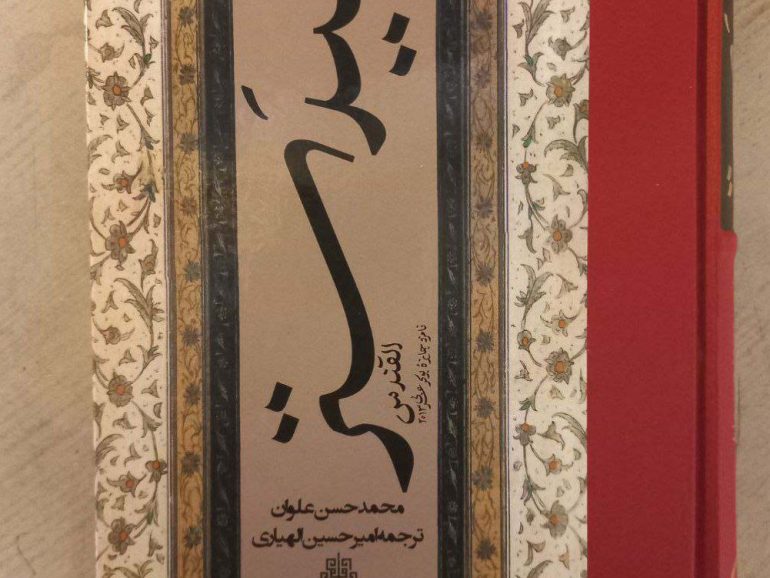 بیدَستر
القندس
نامزد جایزهٔ بوکر عربی ۲۰۱۳
محمدحسن علوان
ترجمه امیرحسین الهیاری